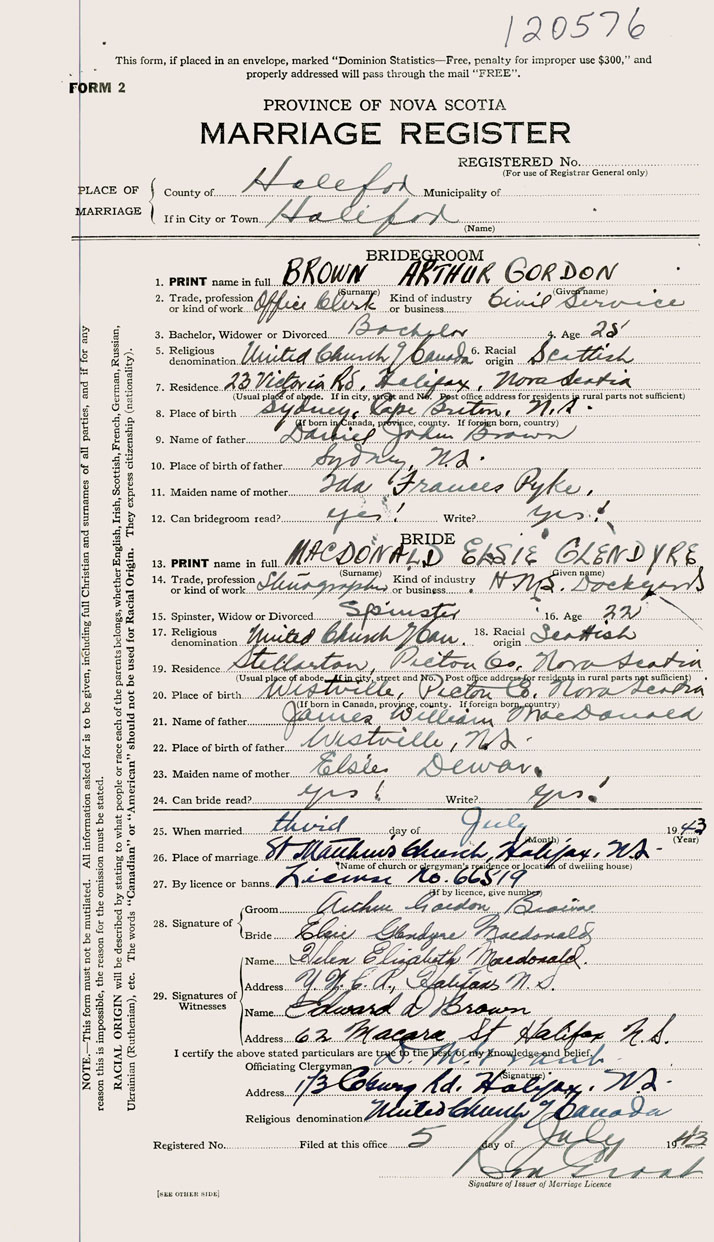 120576
This form, if placed in an envelope, marked "Dominion Statistics—Free, penalty for improper use $300," and
properly addressed will pass through the mail "FREE".
FORM 2
PROVINCE OF NOVA SCOTIA
MARRIAGE REGISTER
REGISTERED No.
(For use of Registrar General only)
PLACE OF MARRIAGE
County of Halifax Municipality of
If in City or Town Halifax
(Name)
BRIDEGROOM
1. PRINT name in full BROWN ARTHUR GORDON
(Surname) (Given name)
2. Trade, profession or kind of work Office Clerk Kind of industry or business Civil Service
3. Bachelor, Widower or Divorced Bachelor 4. Age 25
5. Religious denomination United Church of Canada 6. Racial origin Scottish
7. Residence 23 Victoria Rd, Halifax, Nova Scotia
(Usual place of abode. If in city, street and No. Post office address for residents in rural parts not sufficient)
8. Place of birth Sydney, Cape Briton, N.S.
(If born in Canada, province, county. If foreign born, country)
9. Name of father Daniel John Brown
10. Place of birth of father Sydney, N.S.
11. Maiden name of mother Ida Frances Pyke,
12. Can bridegroom read? yes! Write? yes!
BRIDE
13. PRINT name in full MACDONALD ELSIE GLENDYRE
(Surname) (Given name)
14. Trade, profession or kind of work Stenographer Kind of industry or business H.M.S. Dockyard
15. Spinster, Widow or Divorced Spinster 16. Age 22
17. Religious denomination United Church of Can. 18. Racial origin Scottish
19. Residence Stellarton, Pictou Co, Nova Scotia
(Usual place of abode. If in city, street and No. Post office address for residents in rural parts not sufficient)
20. Place of birth Westville, Pictou Co. Nova Scotia
(If born in Canada, province, county. If foreign born, country)
21. Name of father James William MacDonald
22. Place of birth of father Westville, N.S.
23. Maiden name of mother Elsie Dewar.
24. Can bride read? yes! Write? yes!
25. When married third day of July 1943
(Month) (Year)
26. Place of marriage St Matthew's Church, Halifax, N.S.
(Name of church or clergyman's residence or location of dwelling house)
27. By licence or banns License No. 66519
(If by licence, give number)
28. Signature of
Groom Arthur Gordon Brown
Bride Elsie Glendyre Macdonald
29. Signatures of Witnesses
Name Helen Elizabeth Macdonald.
Address Y.W.C.A., Halifax N.S.
Name Edward D Brown
Address 62 Macara St Halifax N.S.
I certify the above stated particulars are true to the best of my knowledge and belief.
Officiating Clergyman
(Signature)
Address 173 Coburg Rd. Halifax, N.S.
Religious denomination United Church of Canada
Registered No. Filed at this office 5 day of July 1943
Signature of Issuer of Marriage Licence
[SEE OTHER SIDE]
NOTE.—This form must not be mutilated. All information asked for is to be given, including full Christian and surnames of all parties, and if for any
reason this is impossible, the reason for the omission must be stated.
RACIAL ORIGIN will be described by stating to what people or race each of the parents belongs, whether English, Irish, Scottish, French, German, Russian,
Ukrainian (Ruthenian), etc. The words "Canadian" or "American" should not be used for Racial Origin. They express citizenship (nationality).